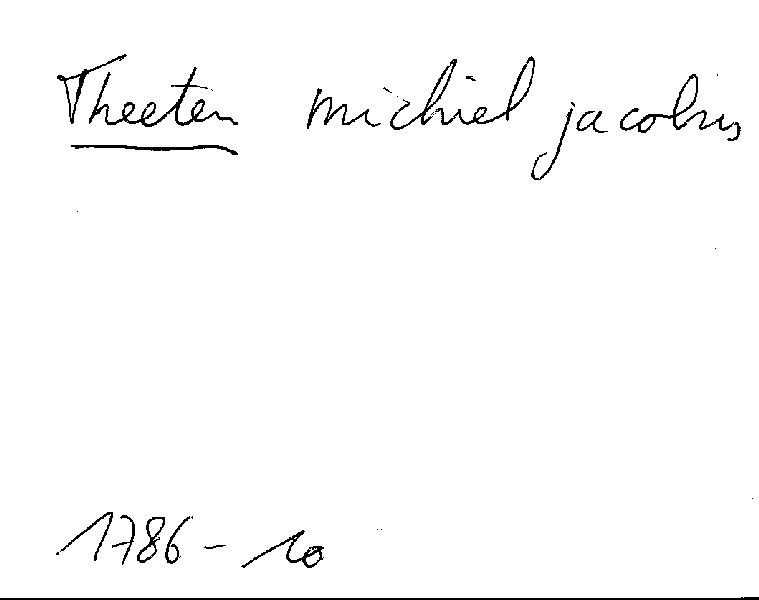 Theeten michiel jacobus
1786 - 10